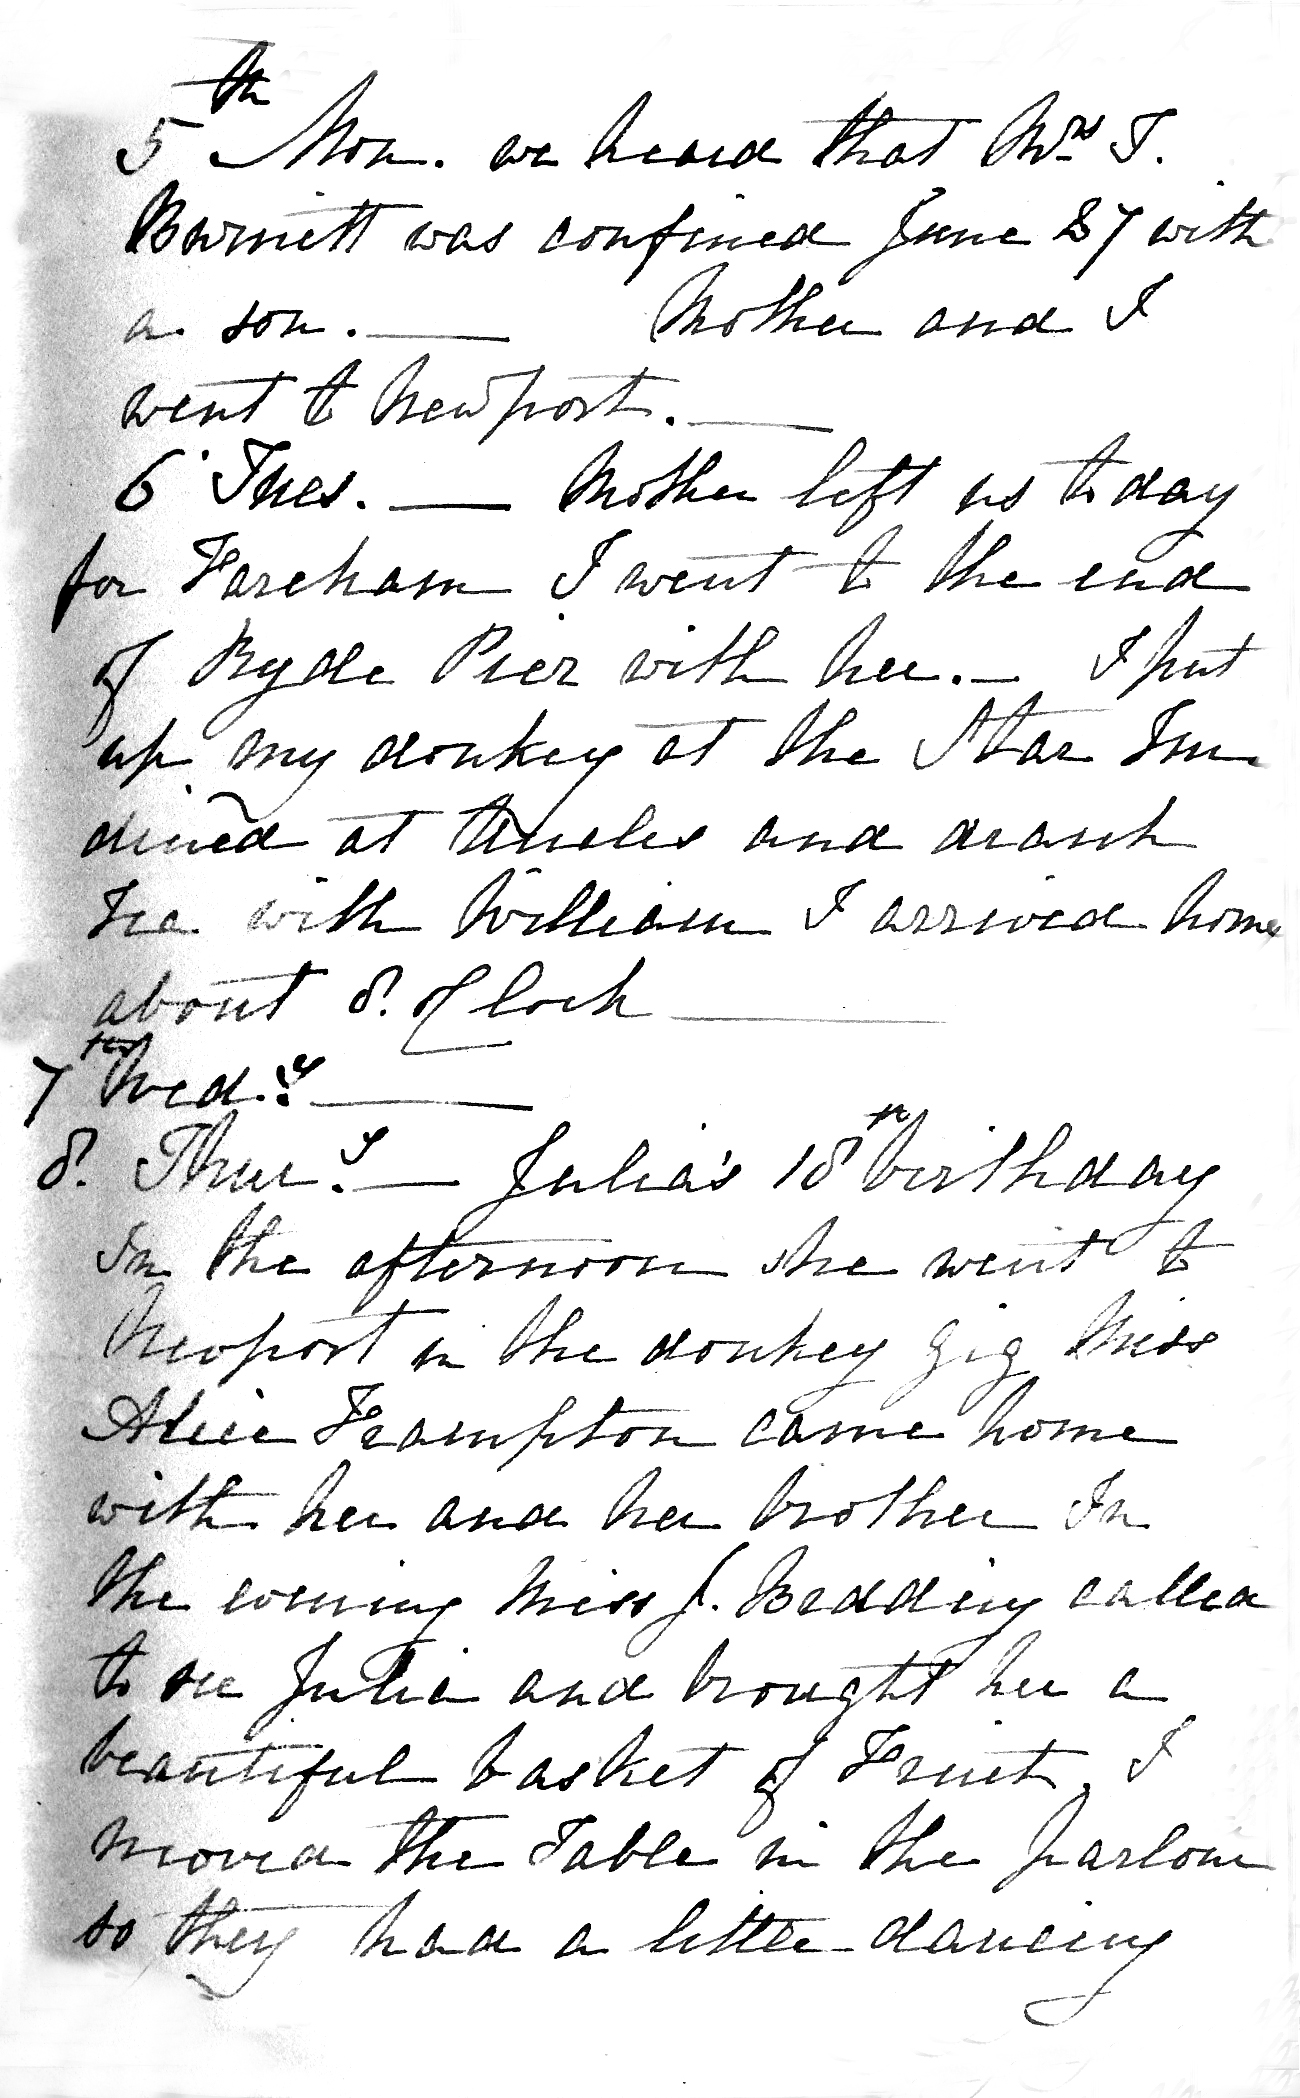 5th Mon. we heard that Mrs T.
Barnett was confined June 27 with
a son. — Mother and I
went to Newport. —
6 Tues. — Mother left us to day
for Fareham I went to the end
of Ryde Pier with her. — I put
up my donkey at the Star Inn
dined at Uncles and drank
Tea with William I arrived home
about 8. o Clock —
7th Wed.y —
8. Thur.y — Julia's 18th birthday
In the afternoon she went to
Newport in the donkey gig Miss
Alice Frampton came home
with her and her brother In
the evening Miss J. Bedding called
to see Julia and brought her a
beautiful basket of Fruit, I
moved the Table in the parlour
so they had a little dancing